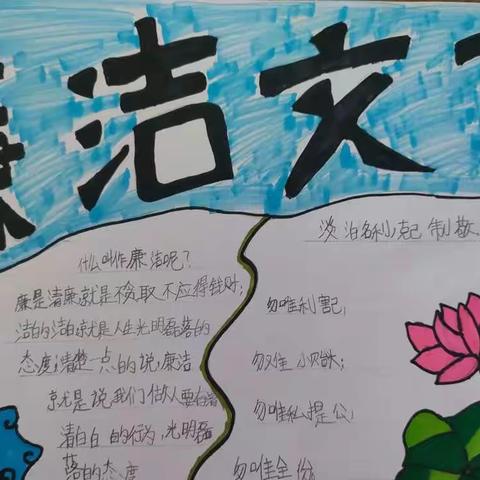 廉洁文
什么叫作廉洁呢?
廉是清廉就是不贪取不应得钱财;
洁的洁白就是人生光明磊落的
态度;清楚一点的说,廉洁
就是说我们做人要有清
清白白的行为,光明磊
落的态度
淡泊名利 克己 制敬
勿唯利害己,
勿唯
勿唯私提公,
勿唯全份